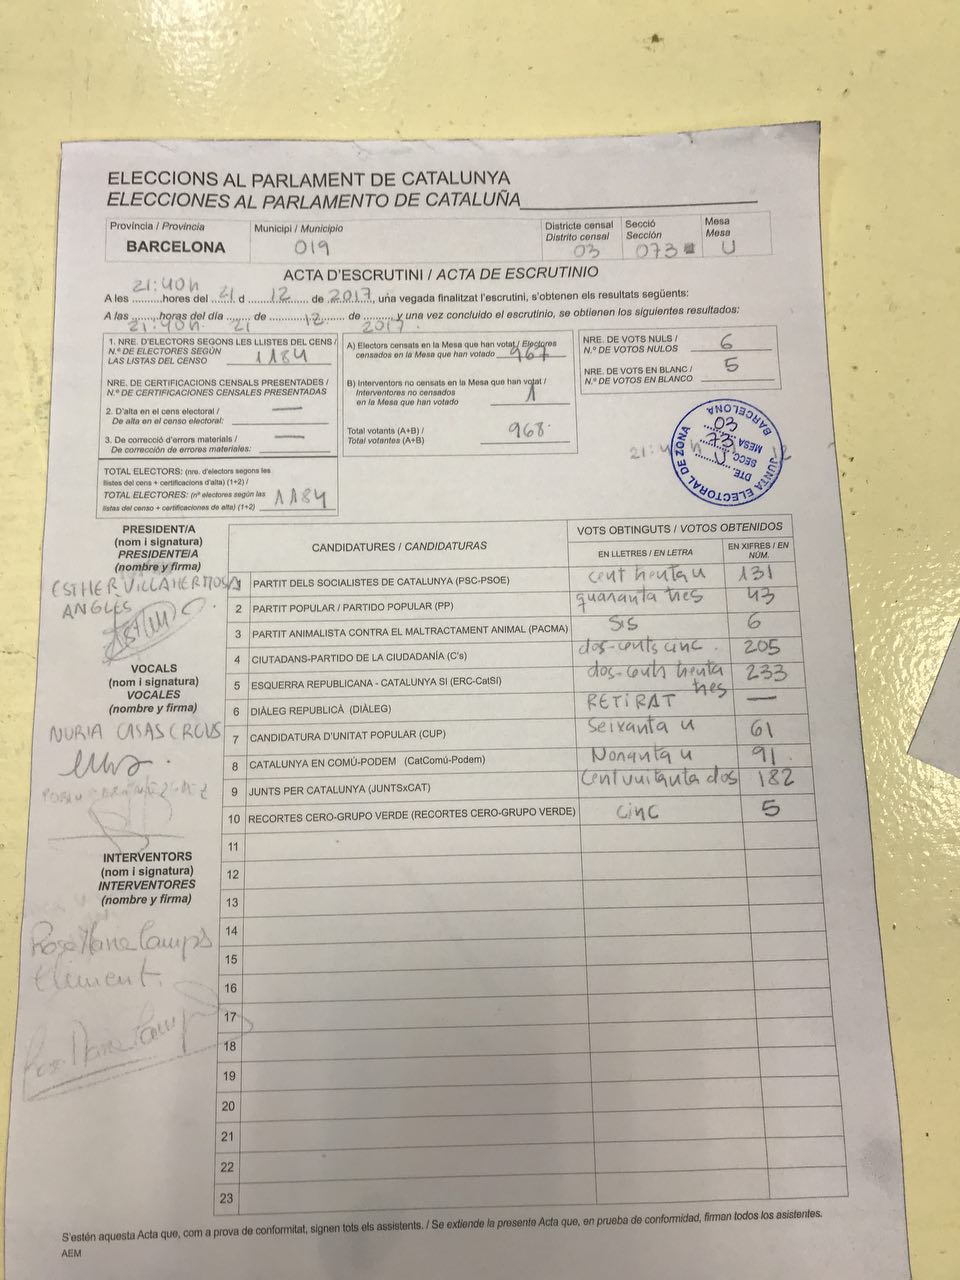 ELECCIONS AL PARLAMENT DE CATALUNYA
ELECCIONES AL PARLAMENTO DE CATALUÑA
Província / Provincia
BARCELONA
Municipi / Municipio
019
Districte censal
Distrito censal
03
Secció
Sección
073
Mesa
Mesa
U
ACTA D'ESCRUTINI / ACTA DE ESCRUTINIO
21:40h
A les ..........hores del 21 d 12 de 2017, una vegada finalitzat l'escrutini, s'obtenen els resultats següents:
A las ..........horas del día 21 de 12 de ......... y una vez concluido el escrutinio, se obtienen los siguientes resultados:
21:40h. 2017
1. NRE. D'ELECTORS SEGONS LES LLISTES DEL CENS /
N.º DE ELECTORES SEGÚN
LAS LLISTAS DEL CENSO 1184
NRE. DE CERTIFICACIONS CENSALS PRESENTADES /
N.º DE CERTIFICACIONES CENSALES PRESENTADAS
2. D'alta en el cens electoral /
De alta en el censo electoral: —
3. De correcció d'errors materials /
De corrección de errores materiales: —
TOTAL ELECTORS: (nre. d'electors segons les
llistes del cens + certificacions d'alta) (1+2) /
TOTAL ELECTORES: (nº electores según las
listas del censo + certificaciones de alta) (1+2) 1184
A) Electors censats en la Mesa que han votat / Electores
censados en la Mesa que han votado 967
B) Interventors no censats en la Mesa que han votat /
Interventores no censados
en la Mesa que han votado 1
Total votants (A+B) /
Total votantes (A+B) 968
NRE. DE VOTS NULS /
N.º DE VOTOS NULOS 6
NRE. DE VOTS EN BLANC /
N.º DE VOTOS EN BLANCO 5
JUNTA ELECTORAL DE ZONA
BARCELONA
DTE.
SECC. U
MESA 73
03
PRESIDENT/A
(nom i signatura)
PRESIDENTE/A
(nombre y firma)
ESTHER VILLAHERMOSA
ANGLÈS
VOCALS
(nom i signatura)
VOCALES
(nombre y firma)
NURIA CASAS CROUS
INTERVENTORS
(nom i signatura)
INTERVENTORES
(nombre y firma)
Rosa Maria Camps
Climent.
Rosa Maria Camps
CANDIDATURES / CANDIDATURAS
VOTS OBTINGUTS / VOTOS OBTENIDOS
EN LLETRES / EN LETRA
EN XIFRES / EN NÚM.
1 PARTIT DELS SOCIALISTES DE CATALUNYA (PSC-PSOE) cent trenta u 131
2 PARTIT POPULAR / PARTIDO POPULAR (PP) quaranta tres 43
3 PARTIT ANIMALISTA CONTRA EL MALTRACTAMENT ANIMAL (PACMA) SIS 6
4 CIUTADANS-PARTIDO DE LA CIUDADANÍA (C's) dos-cents cinc. 205
5 ESQUERRA REPUBLICANA - CATALUNYA SI (ERC-CatSí) dos-cents trenta tres 233
6 DIÀLEG REPUBLICÀ (DIÀLEG) RETIRAT —
7 CANDIDATURA D'UNITAT POPULAR (CUP) Seixanta u 61
8 CATALUNYA EN COMÚ-PODEM (CatComú-Podem) Noranta u 91
9 JUNTS PER CATALUNYA (JUNTSxCAT) Cent vuitanta dos 182
10 RECORTES CERO-GRUPO VERDE (RECORTES CERO-GRUPO VERDE) cinc 5
11
12
13
14
15
16
17
18
19
20
21
22
23
S'estén aquesta Acta que, com a prova de conformitat, signen tots els assistents. / Se extiende la presente Acta que, en prueba de conformidad, firman todos los asistentes.
AEM